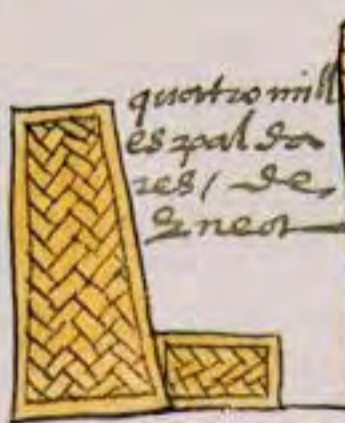 quatro mill
espalda
res / de
enea